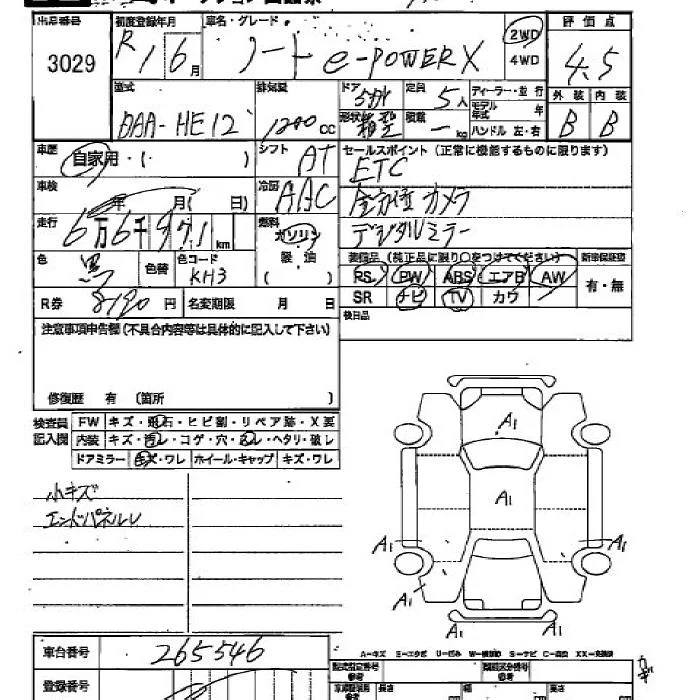 出品番号 初度登録年月 車名・グレード 評価点
3029 R1 6月 ノート e-POWER X 2WD 4WD 4.5
型式 排気量 ドア 5ドア 定員 5人 ディーラー・並行 外装 内装
DAA-HE12 1200cc 形状 箱型 積載 ー kg モデル年式 年 ハンドル 左・右 B B
車歴 自家用・( ) シフト AT セールスポイント(正常に機能するものに限ります)
ETC
車検 年 月( 日) 冷房 AAC 全方位カメラ
走行 6万6千971km 燃料 ガソリン 軽油 ( ) デジタルミラー
装備品(純正品に限り○をつけてください) 新車保証書
色 黒 色替 色コード KH3 PS PW ABS エアB AW 有・無
R券 8190円 名変期限 月 日 SR ナビ TV カワ
注意事項申告欄(不具合内容等は具体的に記入して下さい) 後日品
修復歴 有 (箇所 )
検査員記入欄 FW キズ・飛石・ヒビ割・リペア跡・X要
内装 キズ・汚レ・コゲ・穴・ ・ヘタリ・破レ
ドアミラー キズ・ワレ ホイール・キャップ キズ・ワレ
小キズ
エンドパネルU
A1
A1
A1 A1
A1
A1
A-キズ E-エクボ U-凹み W-補修跡 S-サビ C-腐食 XX-交換済
車台番号 265546
型式指定番号 類別区分番号
登録番号 長さ 幅 高さ